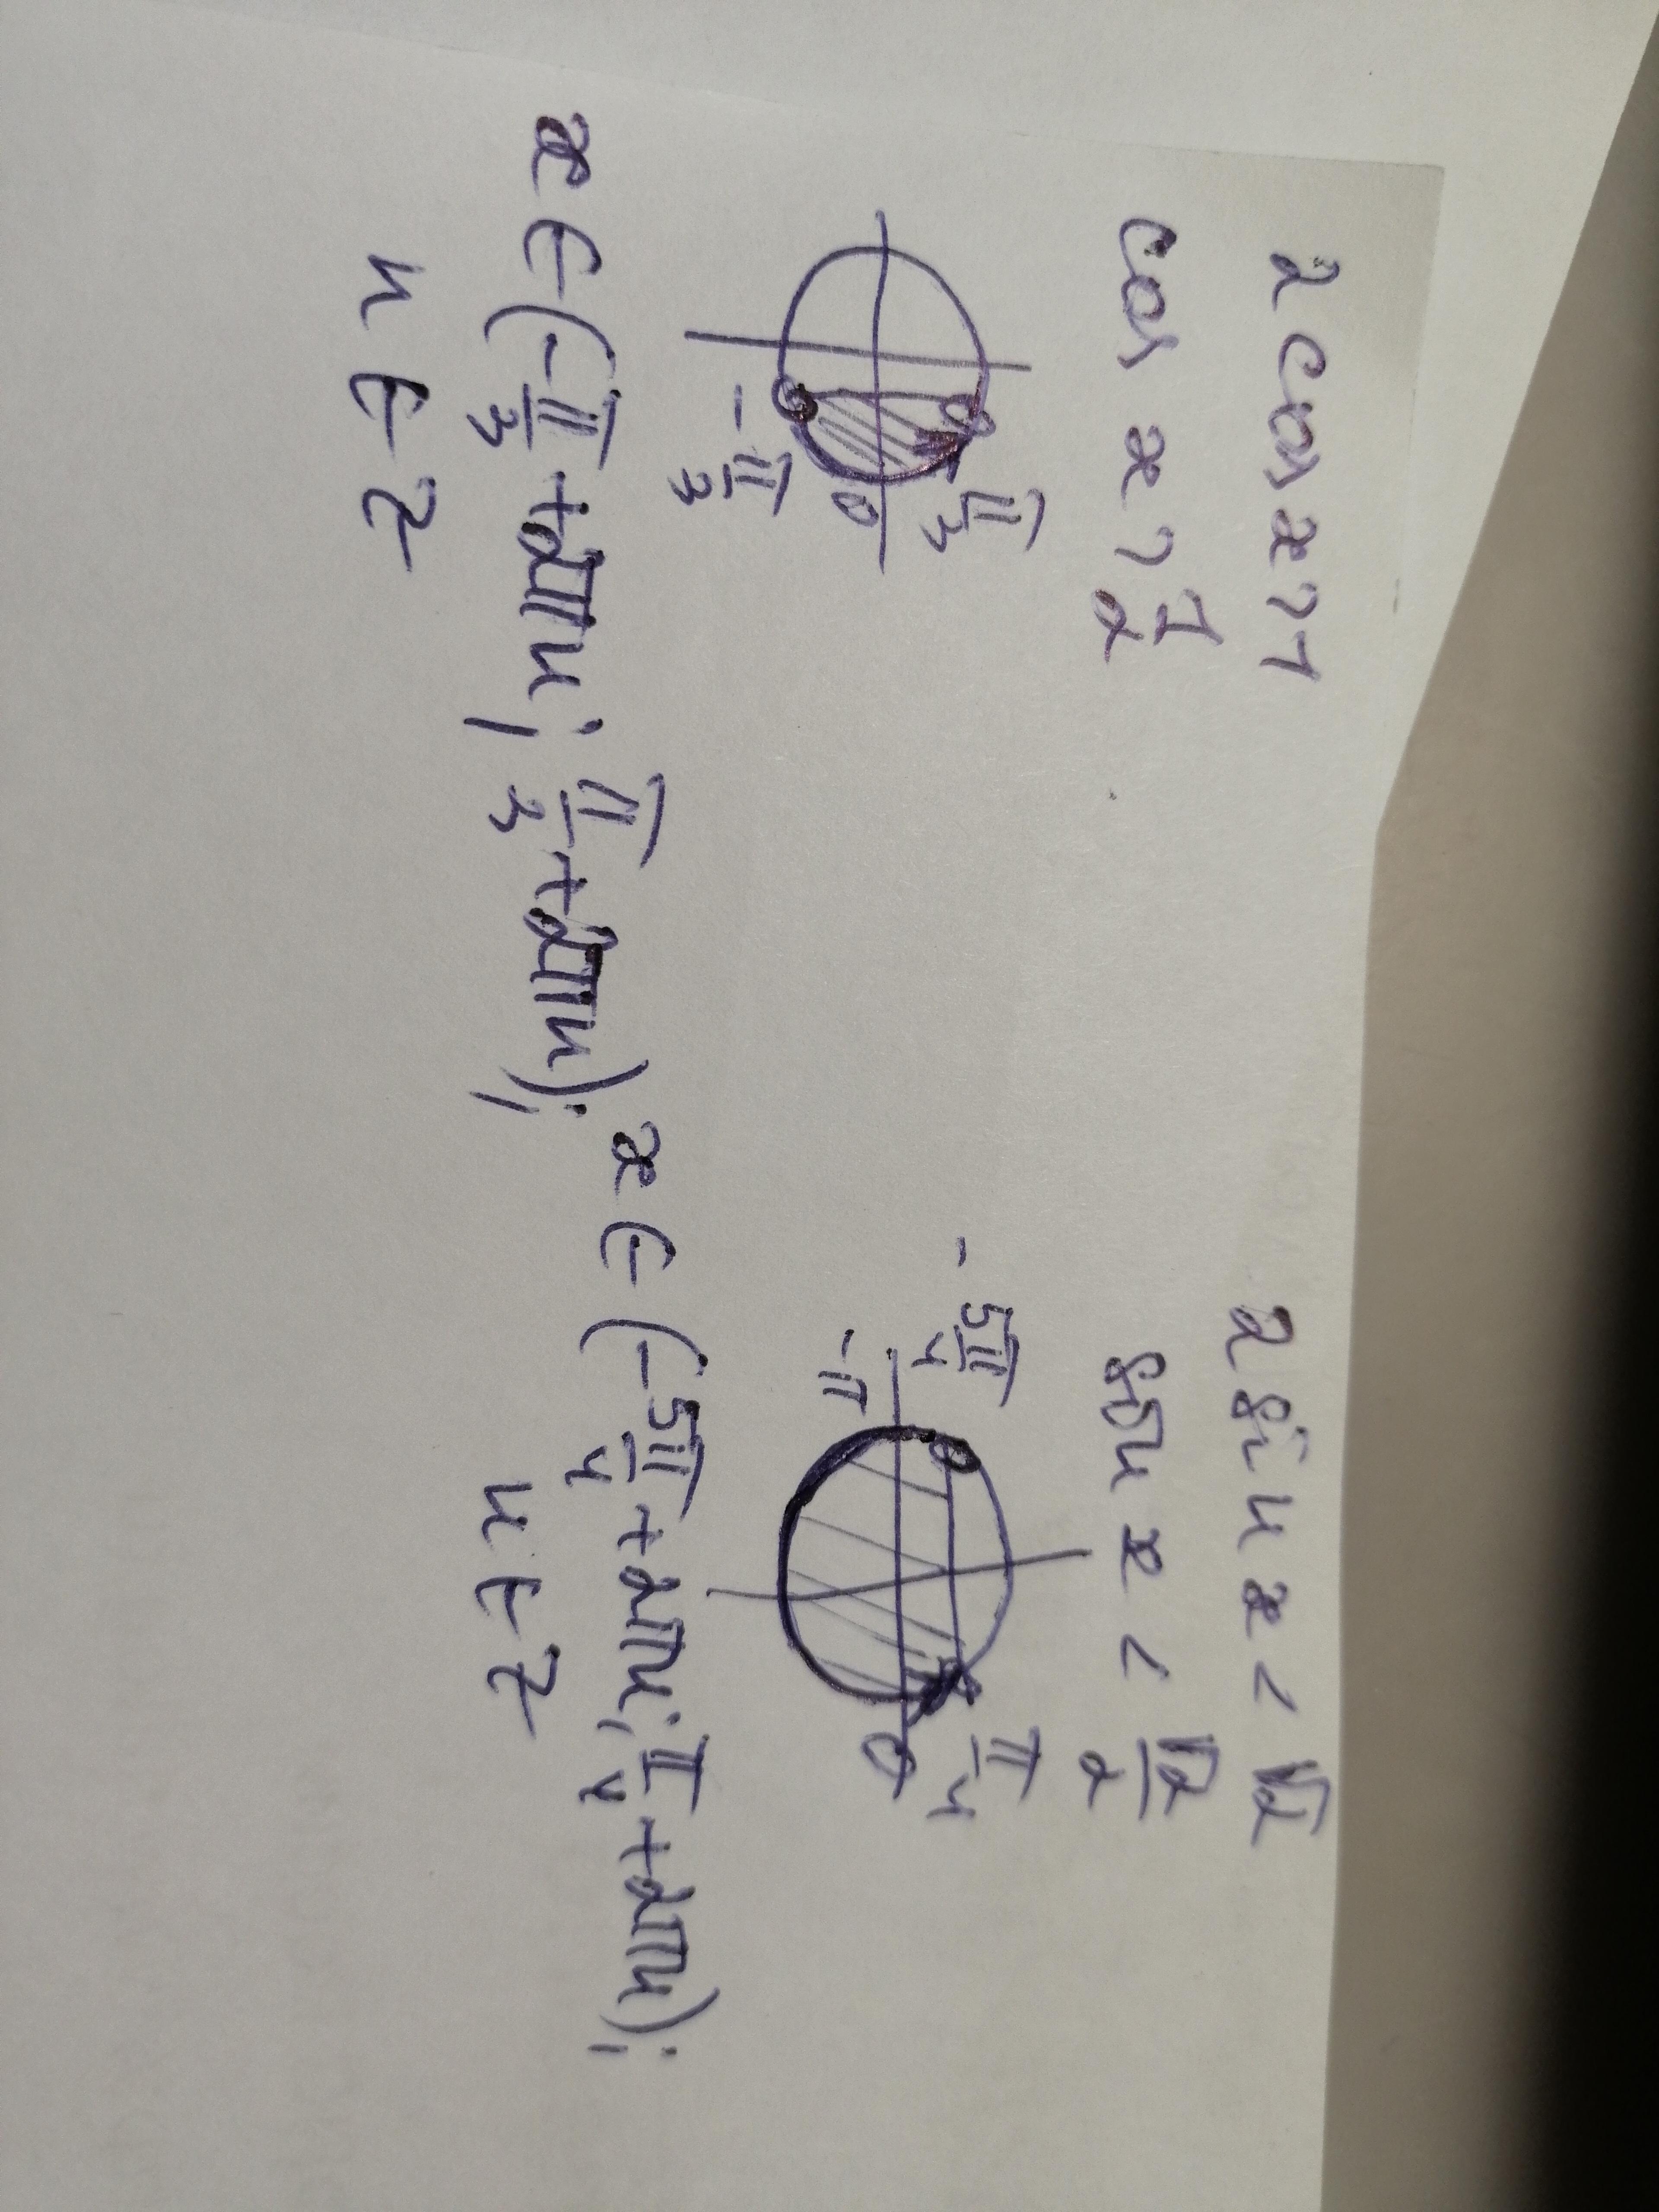 2 cos x > 1
cos x > 1/2
π/3
0
-π/3
x ∈ (-π/3 + 2πn; π/3 + 2πn);
n ∈ Z
2 sin x < √2
sin x < √2/2
-5π/4
π/4
-π
0
x ∈ (-5π/4 + 2πn; π/4 + 2πn);
n ∈ Z